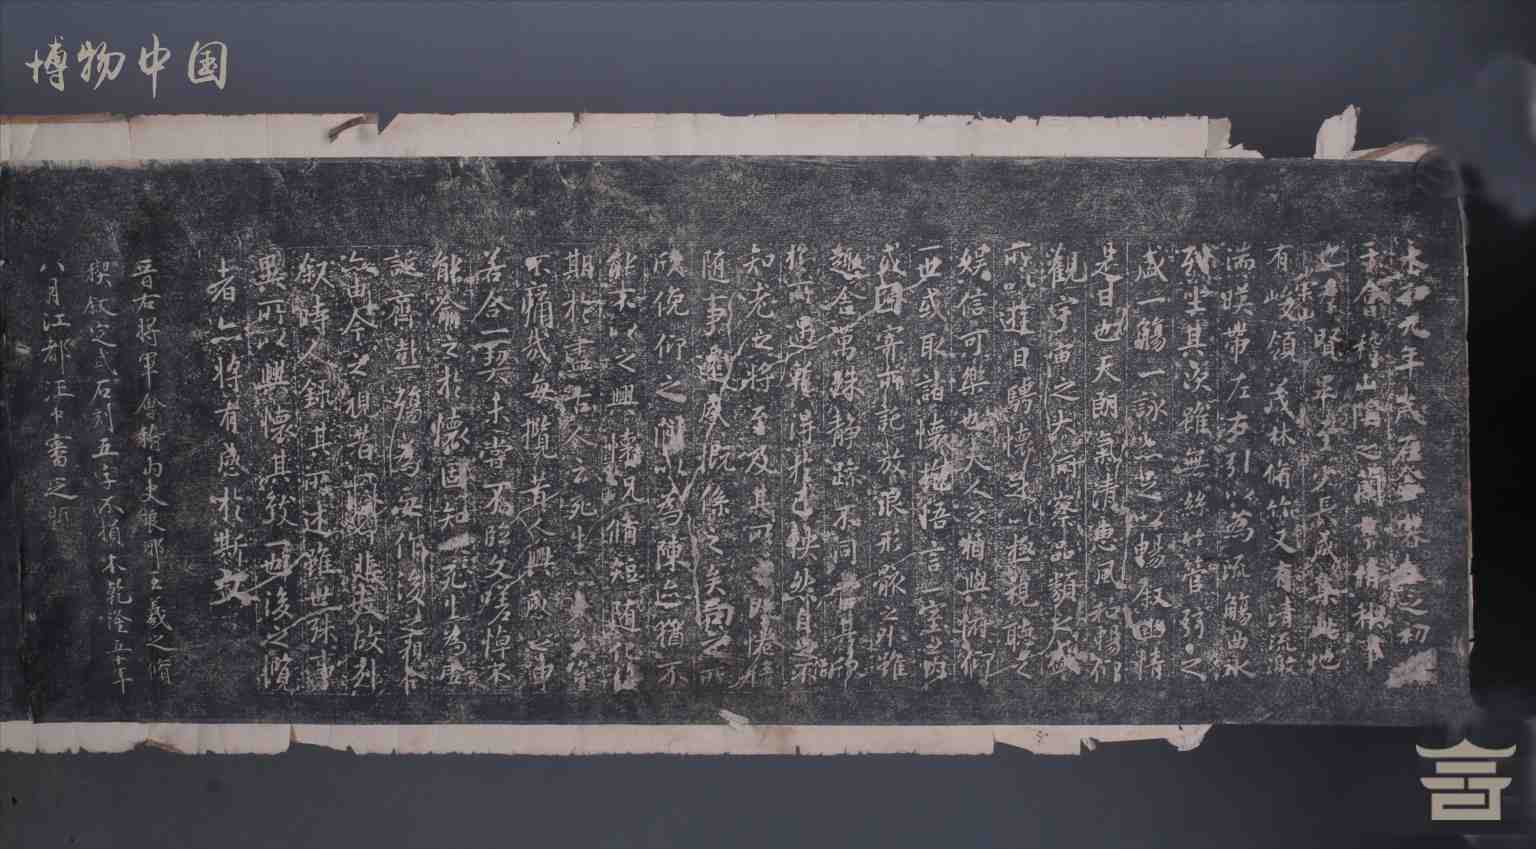 博物中国
永和九年歲在癸丑暮春之初
于會稽山陰之蘭亭脩禊事
也羣賢畢至少長咸集此地
有峻領茂林脩竹又有清流激
湍暎帶左右引以為流觴曲水
列坐其次雖無絲竹管弦之
盛一觴一詠亦足以暢敘幽情
是日也天朗氣清惠風和暢仰
觀宇宙之大俯察品類之盛
所以遊目騁懷足以極視聽之
娛信可樂也夫人之相與俯仰
一世或取諸懷抱悟言一室之內
或因寄所託放浪形骸之外雖
趣舍萬殊靜躁不同當其欣
於所遇暫得於己怏然自足不
知老之將至及其所之既惓情
隨事遷感慨係之矣向之所
欣俛仰之閒以為陳迹猶不
能不以之興懷況脩短隨化終
期於盡古人云死生亦大矣豈
不痛哉每攬昔人興感之由
若合一契未嘗不臨文嗟悼不
能喻之於懷固知一死生為虛
誕齊彭殤為妄作後之視今
亦由今之視昔悲夫故列
敘時人錄其所述雖世殊事
異所以興懷其致一也後之攬
者亦將有感於斯文
晉右將軍會稽內史琅邪王羲之脩
禊敘定武石刻五字不損本乾隆五十年
八月江都汪中書之